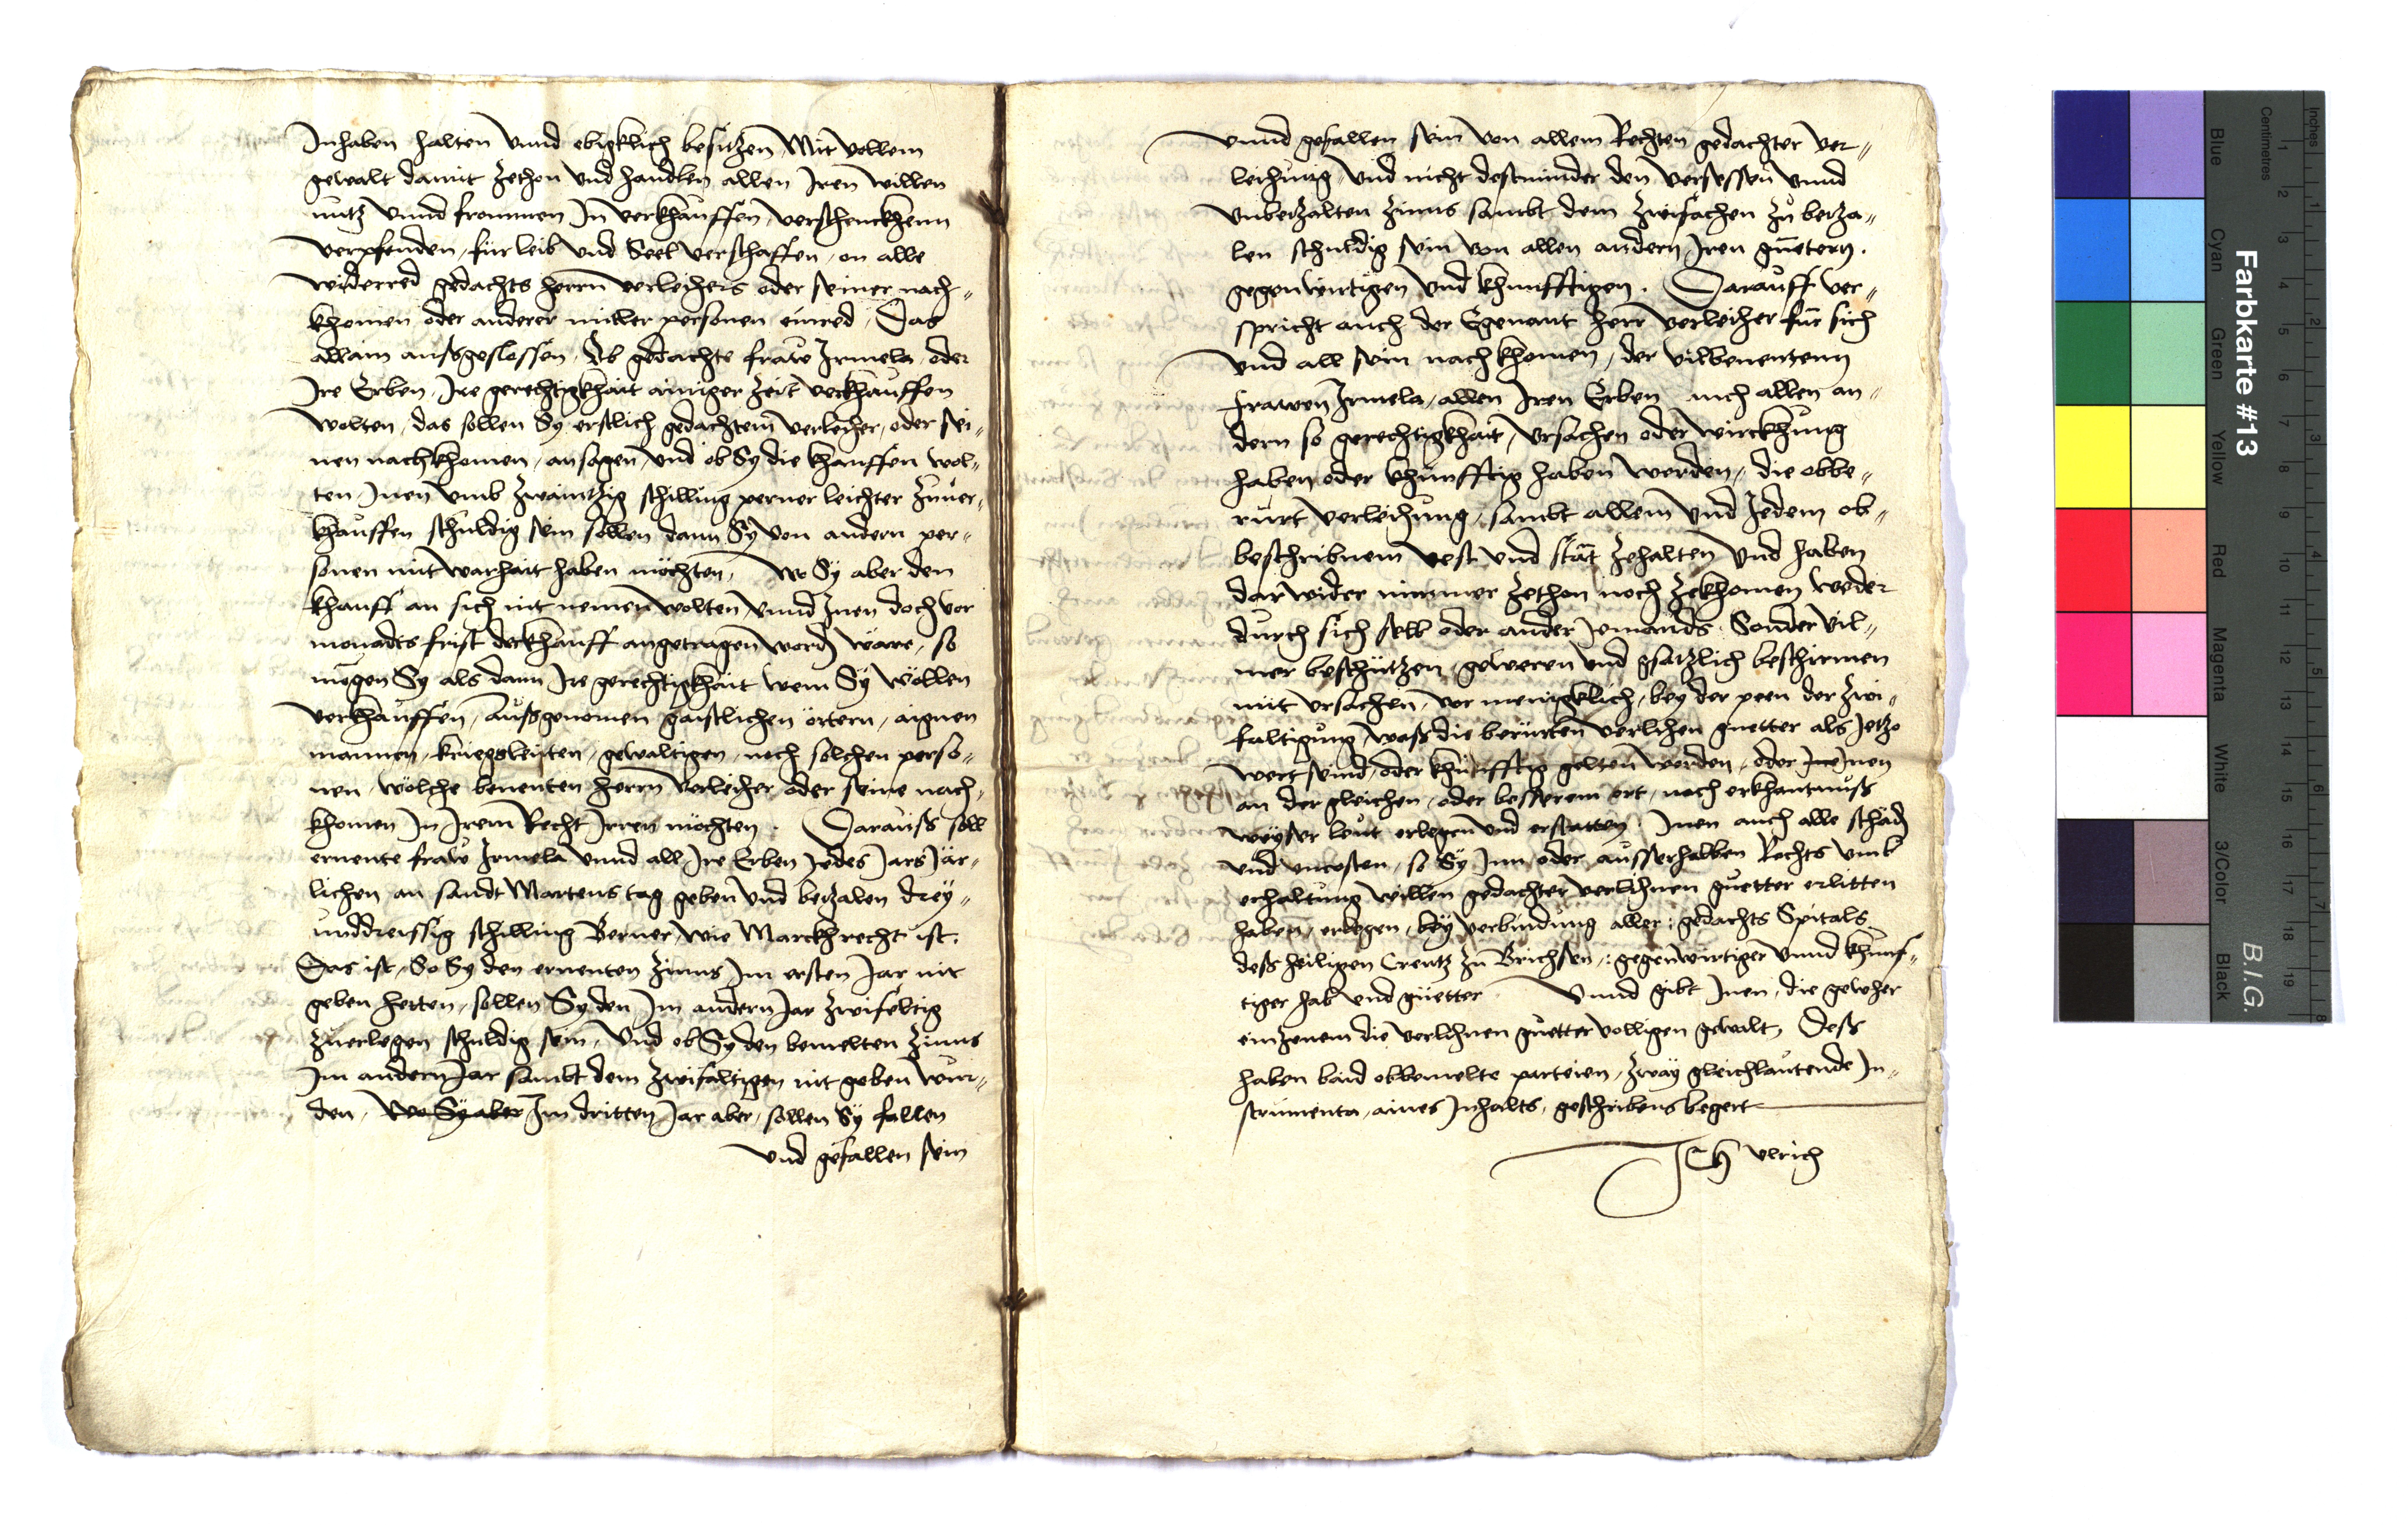 Inhaben halten vnnd ebigklich besitzen, Mit vollem
gewalt damit zethon vnd handlen allen Iren willen
nutz vnnd frommen In verkhauffen, verschenckhenn
verpfenden, für leib vnd Seel verschaffen, on alle
widerred gedachts herrn verleihers oder seiner nach„
khomen oder anderer mitler personen einred, Das
allain aussgeslossen, Ob gedachte fraw Irmela oder
Ire Erben, Ire gerechtigkhait ainiger zeit verkhauffen
wolten, das sollen Sy erstlich gedachtem verleiher, oder sei„
nen nachkhomen, ansagen vnd ob Sy die khauffen wol„
ten, Inen vmb zwaintzig schilling perner leichter zuuer„
khauffen schuldig sein sollen dann Sy von andern per„
sonen mit warhait haben möchten, Wo Sy aber den
khauff an sich nit nemen wolten, vnnd Inen doch vor
monadts frist der khauff angetragen word wäre, so
mögen Sy als dann Ire gerechtigkhait wem Sy wöllen
verkhauffen, Aussgenomen gaistlichen örtern, aignen
mannen, kriegsleuten, gewaltigen, noch solchen perso„
nen, wölche benenten herrn verleiher oder seine nach„
khomen In Irem Recht Irren möchten. Darauss soll
ernente fraw Irmela vnnd all Ire Erben Jedes Jars Jär„
lichen an sandt Martens tag geben vnd bezalen drey„
unddreissig schilling Berner, wie Marckhrecht ist,
Das ist, So Sy den ernenten Zinns Im ersten Jar nit
geben hetten, sollen Sy den Im andern Jar zwifeltig
zuerlegen schuldig sein, Vnd ob Sy den bemelten Zinns
Im andern Jar sambt dem zwifaltigen nit geben wur„
den, Wo Sy aber Im dritten Jar aber, sollen Sy fallen
vnd gefallen sein
vnnd gefallen sein von allem Rechten gedachter ver„
leihung, vnd nicht destminder den versessen vnnd
vnbezalten Zinns sambt dem zwifachen zu beza„
len schuldig sein von allen andern Iren guetern,
gegenwirtigen vnd khunfftigen. Darauff ver„
spricht auch der Egenant herr verleiher für sich
vnd all sein nachkhomen, der vilbenentenn
frawen Irmela, allen Iren Erben auch allen an„
dern so gerechtigkhait, vrsachen oder wirckhung
haben, oder khünfftig haben werden, die obbe„
rürt verleihung, sambt allem vnd Jedem ob„
beschribnem vest vnd stät zehalten vnd haben
darwider nimmer zethon noch zekhomen weder
durch sich selb oder ander Jemands, Sonder vil„
mer beschützen, geweren vnd gsatzlich beschirmen
mit vrsachen, vor menigklich, bey der peen der zwi„
faltigung, wass die berürten verlihen guetter als Jetzo
wert seind, oder khünfftig gelten werden, oder Ire Inen
an der gleichen, oder besserem ort, nach erkhantnuss
weyser leut erlegen vnd erstatten, Inen auch alle schäd
vnd vncosten, so Sy Inn oder ausserhalben Rechts vmb
erhaltung willen gedachter verlihnen guetter erlitten
haben, erlegen, bey verbindung aller: gedachts Spitals
dess heiligen Creutz zu Brichsen: gegenwirtiger vnnd khünf„
tiger hab vnd güetter. Vnnd gibt Inen, die gewher
einzenem die verlihnen guetter volligen gewalt, Dess
haben baid obbemelte parteien, zway gleichlautende In„
strumenta, aines Inhalts, geschribens begert
ICH Vlrich
Inches
Centimetres
1
2
3
4
5
6
7
8
9
10
11
12
13
14
15
16
17
18
19
1
2
3
4
5
6
7
8
Farbkarte #13
B.I.G.
Blue
Cyan
Green
Yellow
Red
Magenta
White
3/Color
Black